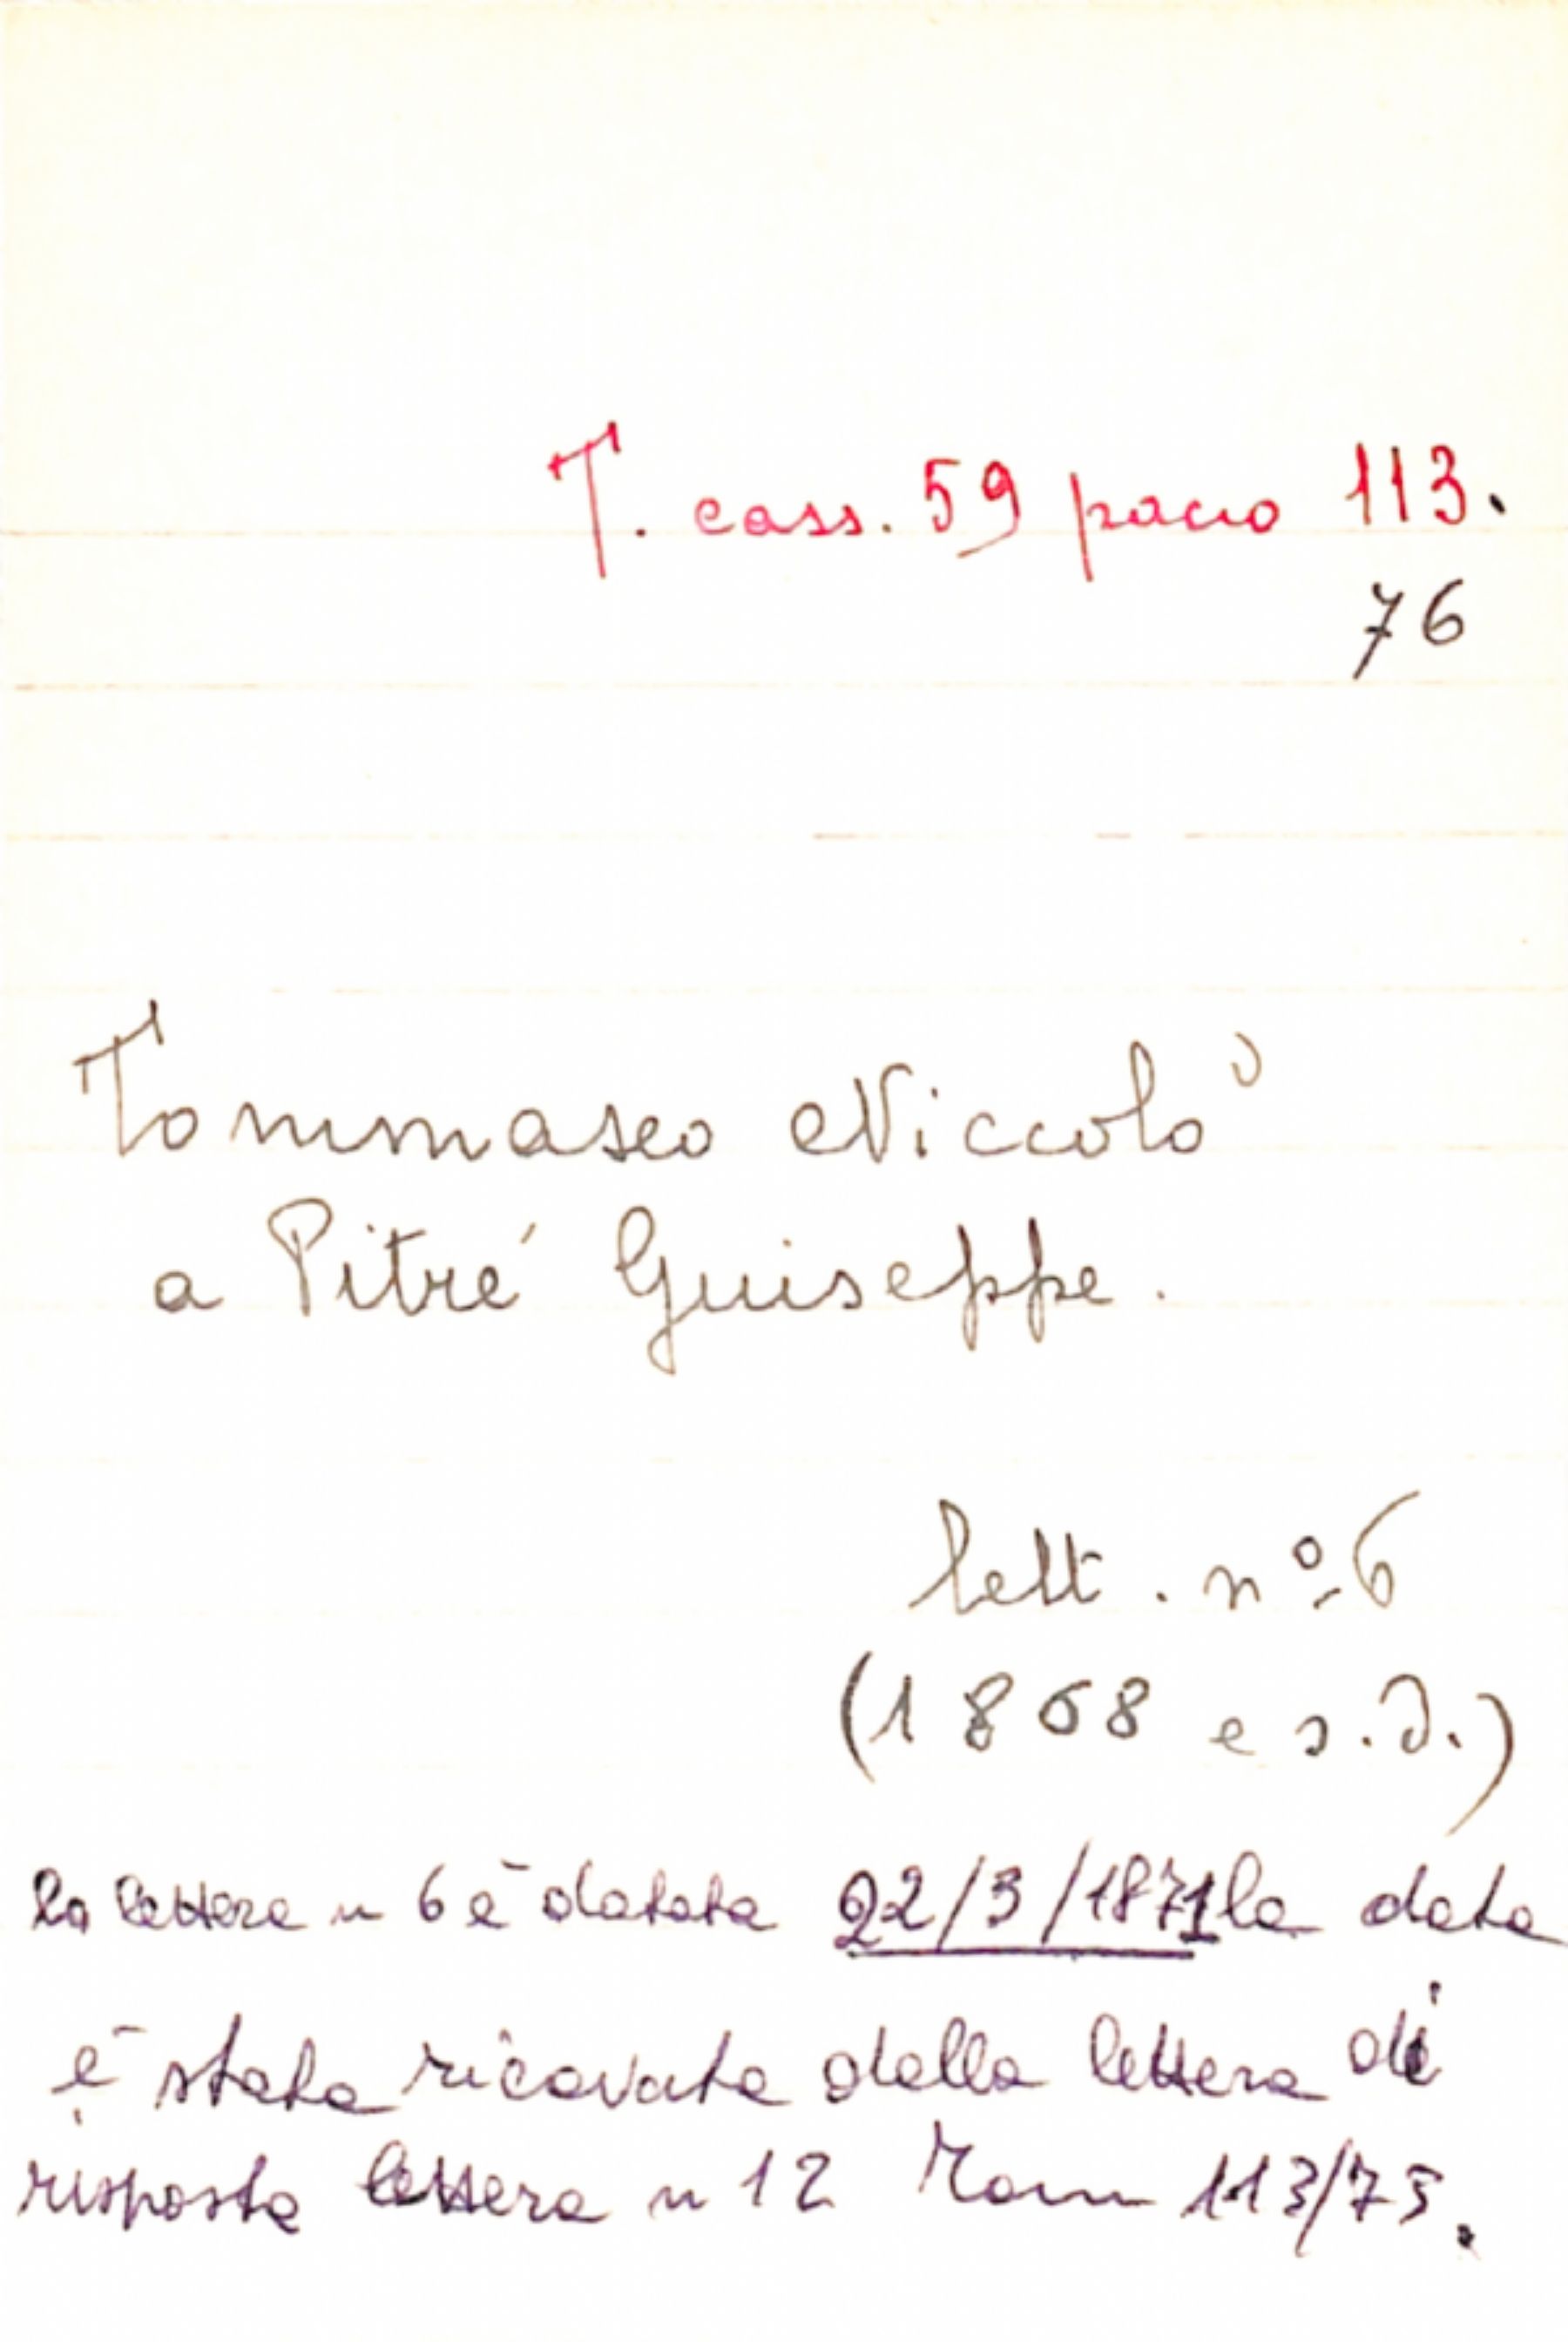 T. cass. 59 pacco 113.
76
Tommaseo Niccolò
a Pitré Giuseppe.
lett. nº 6
(1868 e s.d.)
la lettera n 6 è datata 22/3/1871 la data
è stata ricavata dalla lettera di
risposta lettera n 12 Tom 113/75.